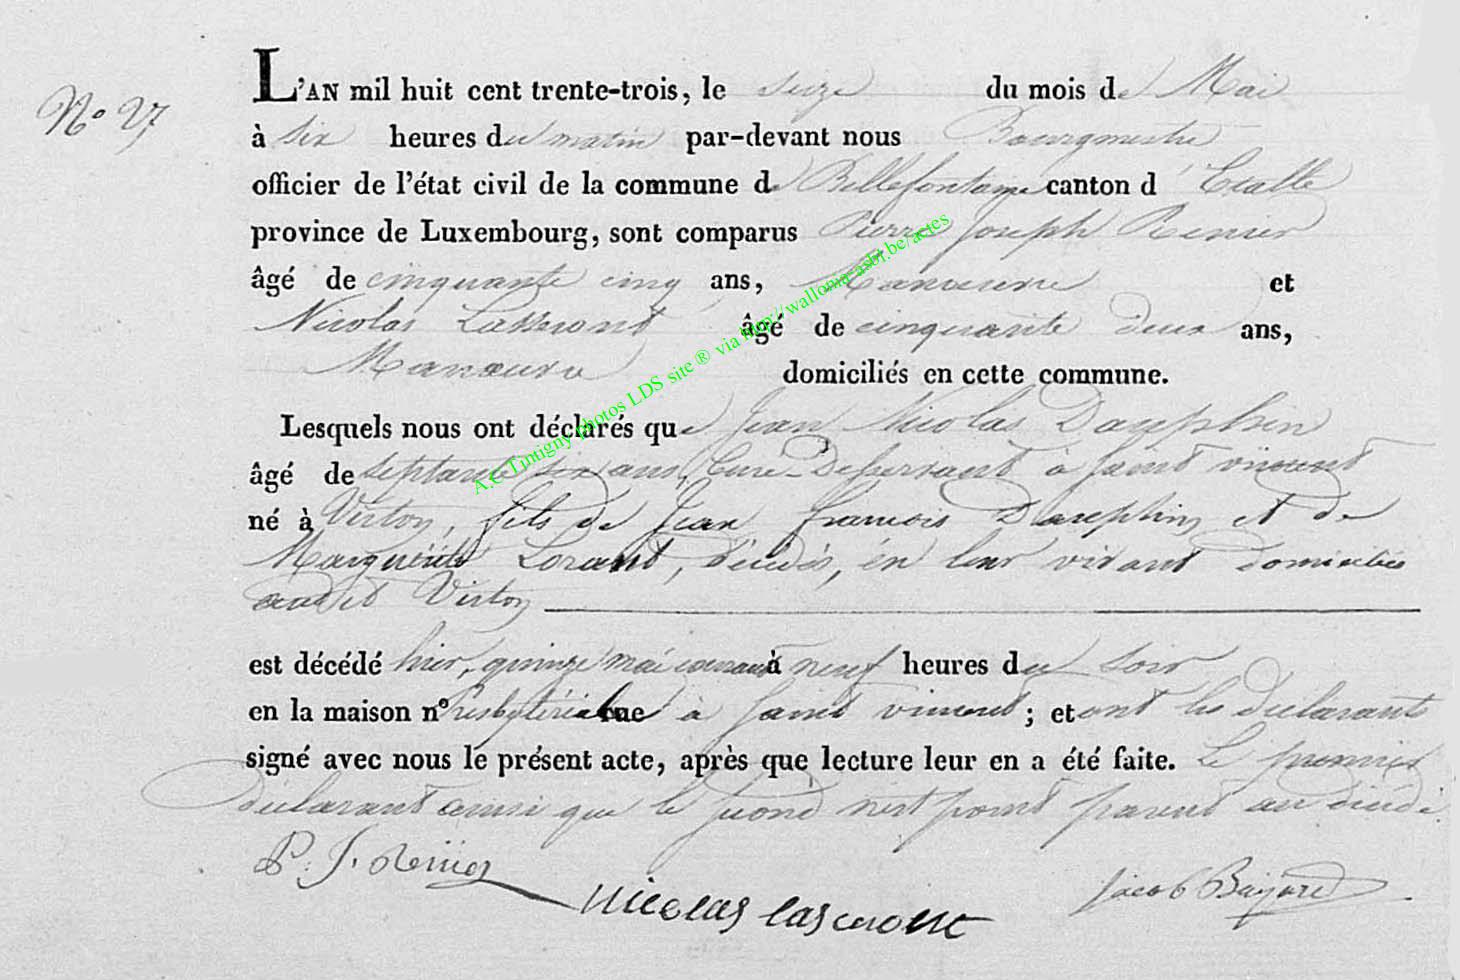 N° 27
L'AN mil huit cent trente-trois, le seize du mois de Mai
à six heures du matin par-devant nous Bourgmestre
officier de l'état civil de la commune de Bellefontaine canton d'Etalle
province de Luxembourg, sont comparus Pierre Joseph Renier
âgé de cinquante cinq ans, Manœuvre et
Nicolas Lasseront âgé de cinquante deux ans,
Manœuvre domiciliés en cette commune.
Lesquels nous ont déclarés que Jean Nicolas Dauphin
âgé de septante six ans, Curé-Desservant à Saint vincent
né à Virton, fils de Jean françois Dauphin et de
Marguerite Lorant, décédés, en leur vivant domiciliés
audit Virton
est décédé hier, quinze mai courant à neuf heures du soir
en la maison n° Presbytériale à Saint vincent ; et ont les déclarants
signé avec nous le présent acte, après que lecture leur en a été faite. Le premier
déclarant ainsi que le second n'est point parent au décédé.
P. J. Renier
Nicolas lasseront
Jacob
A.C Tintigny photos LDS site ® via http://walloma-asbl.be/actes